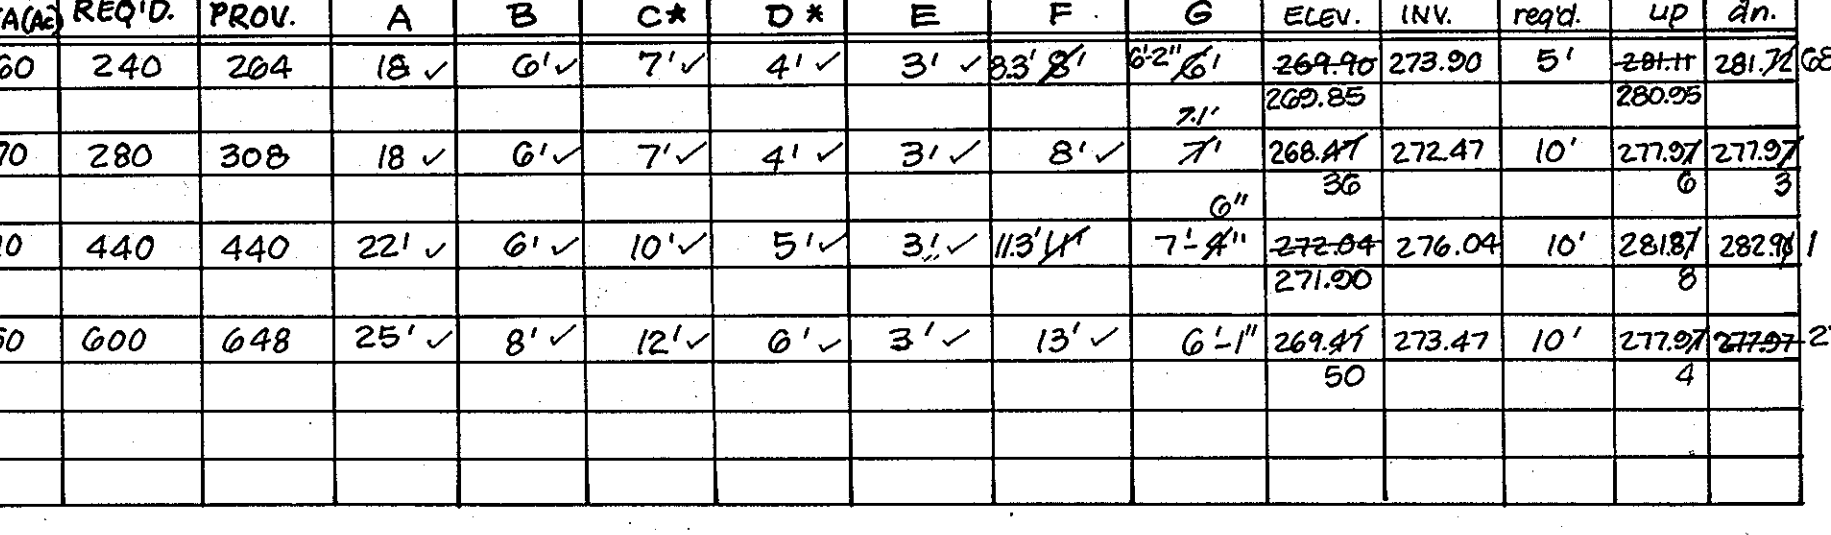 TA(Ac) REQ'D. PROV. A B C* D* E F G ELEV. INV. req'd. up dn.
60 240 264 18 ✓ 6' ✓ 7' ✓ 4' ✓ 3' ✓ 8.3' 8' 6'-2" 6' 269.90 273.90 5' 281.11 281.72 68
269.85 280.95
7.1'
70 280 308 18 ✓ 6' ✓ 7' ✓ 4' ✓ 3' ✓ 8' ✓ 7' 268.47 272.47 10' 277.97 277.97
36 6 3
6"
10 440 440 22' ✓ 6' ✓ 10' ✓ 5' ✓ 3' ✓ 11.3' 11' 7'-4" 272.04 276.04 10' 281.87 282.96 1
271.90 8
50 600 648 25' ✓ 8' ✓ 12' ✓ 6' ✓ 3' ✓ 13' ✓ 6'-1" 269.47 273.47 10' 277.97 277.97
50 4